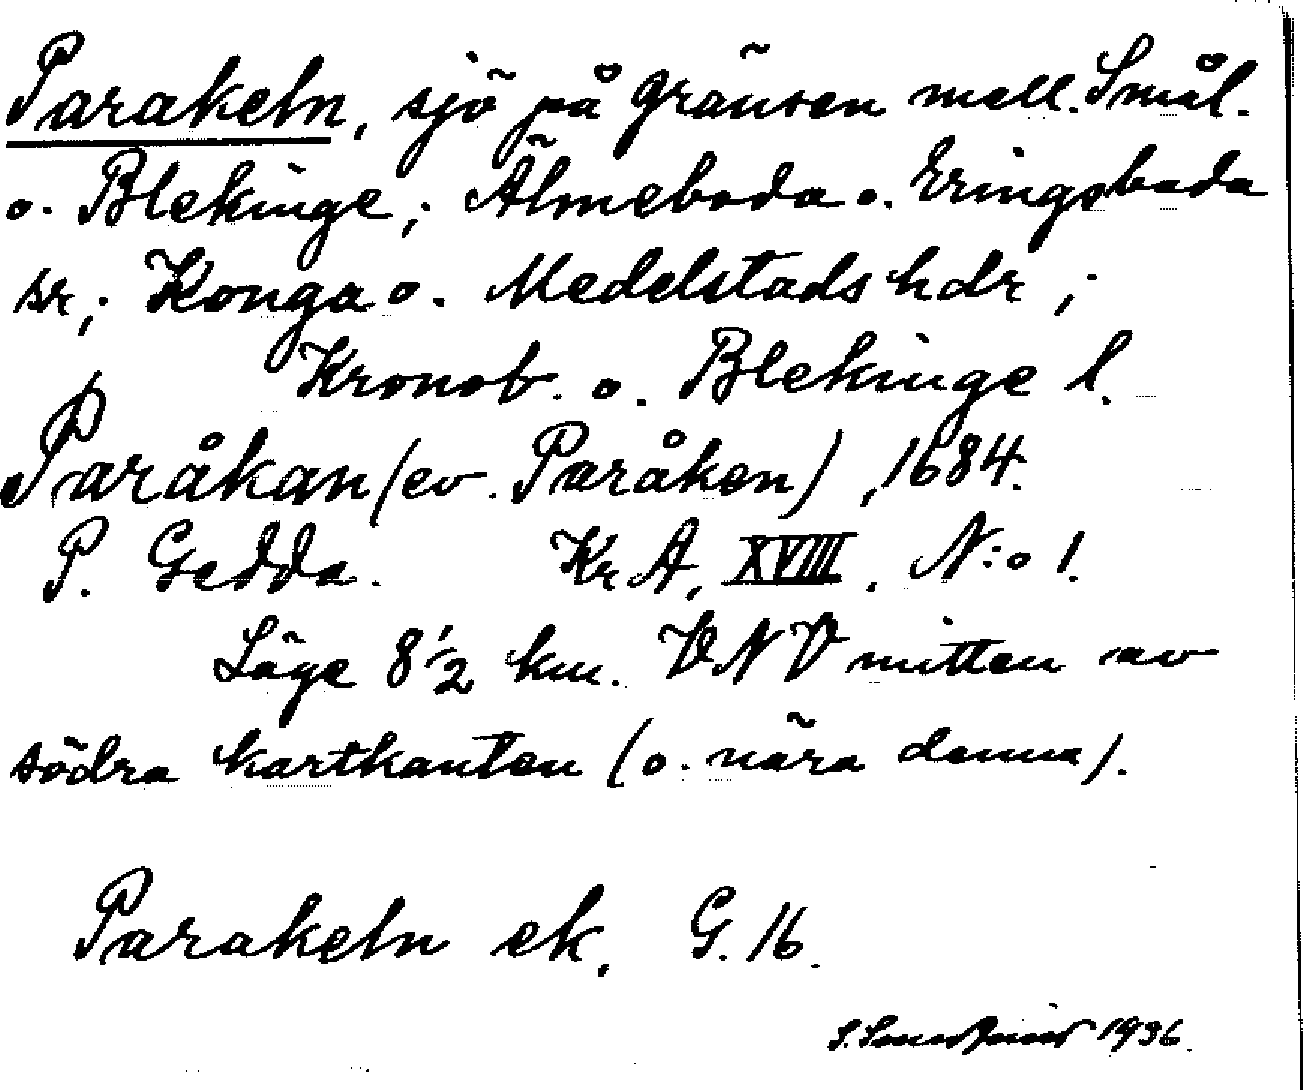 Parakeln, sjö på gränsen mell. Smål.
o. Blekinge; Älmeboda o. Eringsboda
sr; Konga o. Medelstads hdr;
Kronob. o. Blekinge l.
Paråkan (ev. Paråken), 1684.
P. Gedda. KrA, XVIII. N:o 1.
Läge 8 1/2 km. VNV mitten av
södra kartkanten (o. nära denna).
Parakeln ek. G. 16.
S. 1936.